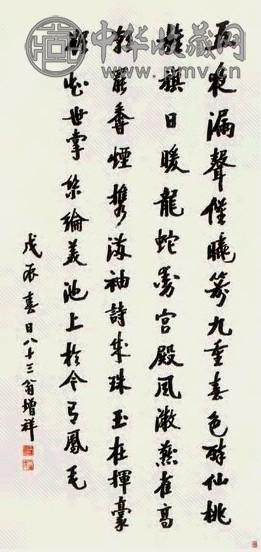 中华收藏网
www.pmv.cn
五夜漏聲催曉箭九重春色醉仙桃
旌旗日暖龍蛇動宮殿風微燕雀高
朝罷香煙攜滿袖詩成珠玉在揮毫
欲知世掌絲綸美池上於今有鳳毛
戊辰春日八十三翁增祥